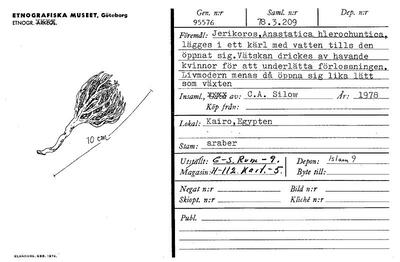 ETNOGRAFISKA MUSEET, Göteborg
ETNOGR.
10 cm
ELANDERS, GBG. 1974.
Gen. n:r Saml. n:r Dep. n:r
95576 78.3.209
Föremål: Jerikoros, Anastatica hierochuntica,
lägges i ett kärl med vatten tills den
öppnat sig. Vätskan drickes av havande
kvinnor för att underlätta förlossningen.
Livmodern menas då öppna sig lika lätt
som växten
Insaml., av: C.A. Silow År: 1978
Köp från:
Lokal: Kairo, Egypten
Stam: araber
Utställt: G-S. Rum-9. Depon: Islam 9
Magasin: H-112. Kart.-5. Byte till:
Negat n:r Bild n:r
Skiopt. n:r Kliché n:r
Publ.